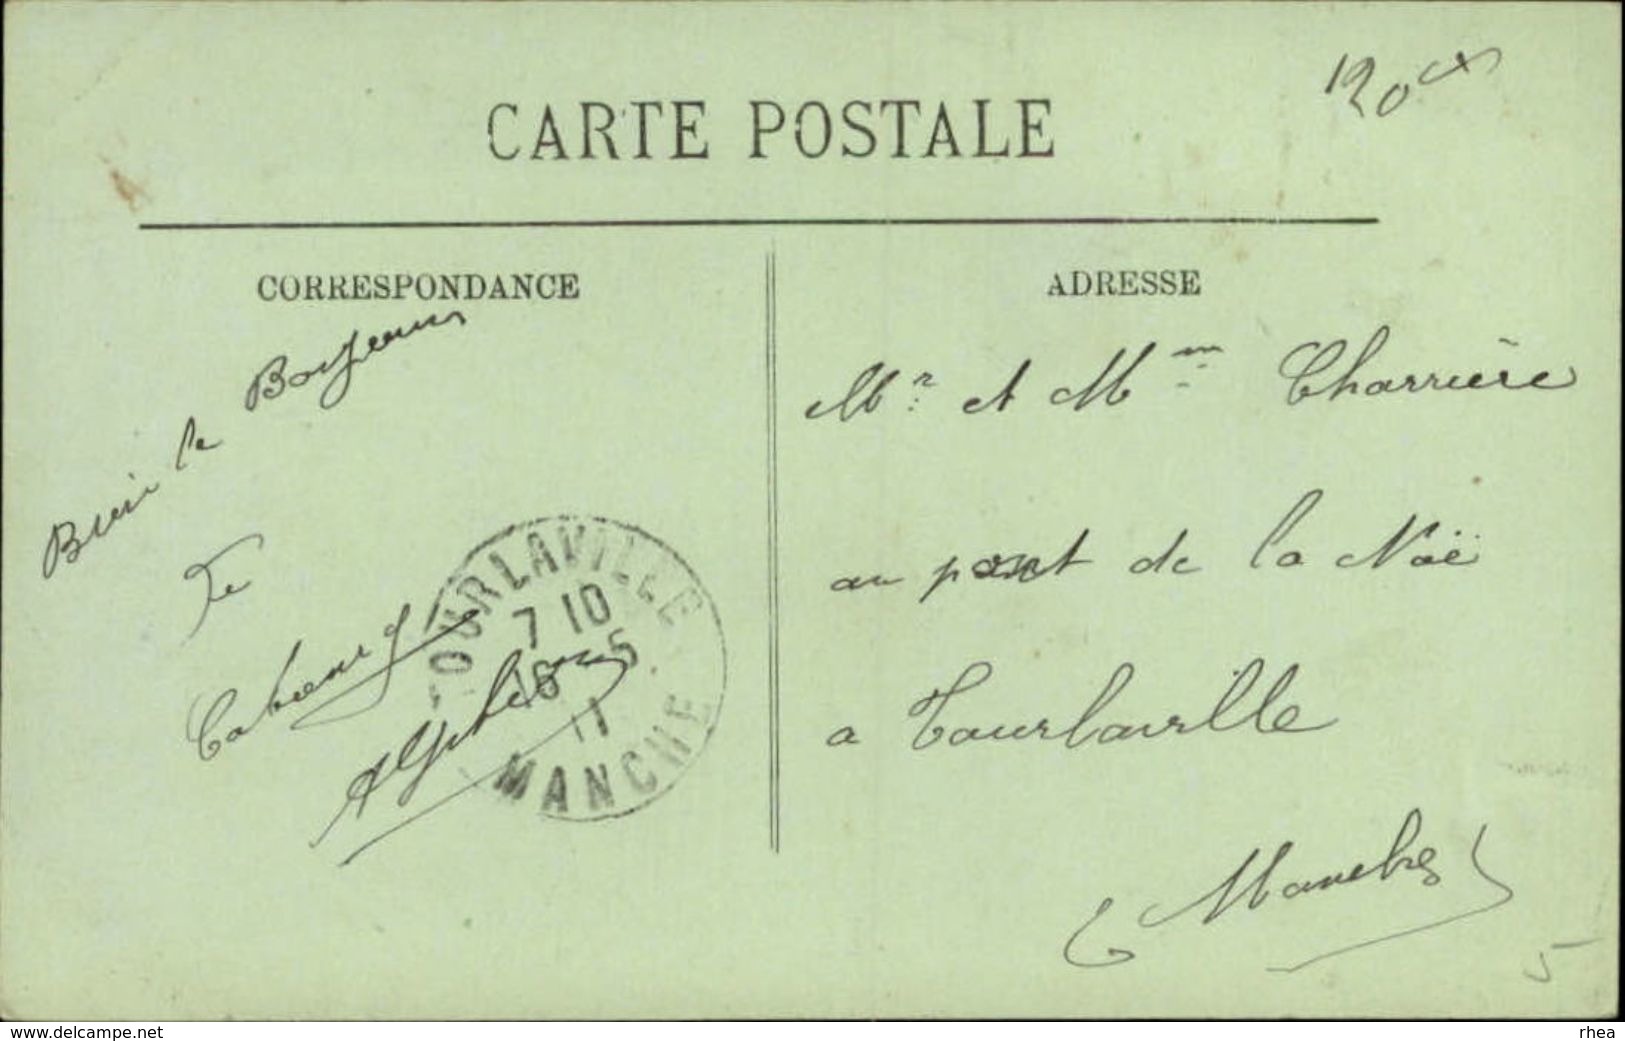 CARTE POSTALE
CORRESPONDANCE
ADRESSE
Bien le
Alphonse
TOURLAVILLE
7 10
16 5
11
MANCHE
Mr. et Mme Charrière
au pont de la Noë
a Tourlaville
(Manche)
5
www.delcampe.net
rhea